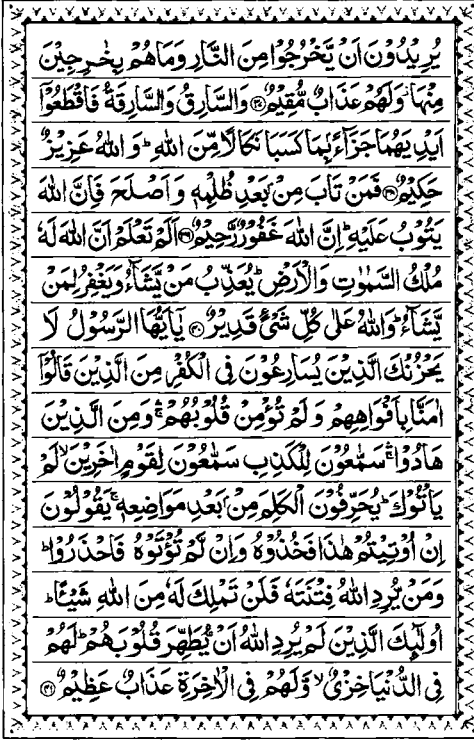 يُرِيْدُوْنَ اَنْ يَّخْرُجُوْا مِنَ النَّارِ وَمَا هُمْ بِخٰرِجِيْنَ
مِنْهَا وَلَهُمْ عَذَابٌ مُّقِيْمٌ ﴿۳۷﴾ وَالسَّارِقُ وَالسَّارِقَةُ فَاقْطَعُوْۤا
اَيْدِيَهُمَا جَزَآءًۢ بِمَا كَسَبَا نَكَالًا مِّنَ اللهِ ؕ وَاللهُ عَزِيْزٌ
حَكِيْمٌ ﴿۳۸﴾ فَمَنْ تَابَ مِنْۢ بَعْدِ ظُلْمِهٖ وَاَصْلَحَ فَاِنَّ اللهَ
يَتُوْبُ عَلَيْهِ ؕ اِنَّ اللهَ غَفُوْرٌ رَّحِيْمٌ ﴿۳۹﴾ اَلَمْ تَعْلَمْ اَنَّ اللهَ لَهٗ
مُلْكُ السَّمٰوٰتِ وَالْاَرْضِ ؕ يُعَذِّبُ مَنْ يَّشَآءُ وَيَغْفِرُ لِمَنْ
يَّشَآءُ ؕ وَاللهُ عَلٰى كُلِّ شَىْءٍ قَدِيْرٌ ﴿۴۰﴾ يٰۤاَيُّهَا الرَّسُوْلُ لَا
يَحْزُنْكَ الَّذِيْنَ يُسَارِعُوْنَ فِى الْكُفْرِ مِنَ الَّذِيْنَ قَالُوْۤا
اٰمَنَّا بِاَفْوَاهِهِمْ وَلَمْ تُؤْمِنْ قُلُوْبُهُمْ ۛۚ وَمِنَ الَّذِيْنَ
هَادُوْا ۛۚ سَمّٰعُوْنَ لِلْكَذِبِ سَمّٰعُوْنَ لِقَوْمٍ اٰخَرِيْنَ ۙ لَمْ
يَاْتُوْكَ ؕ يُحَرِّفُوْنَ الْكَلِمَ مِنْۢ بَعْدِ مَوَاضِعِهٖ ۚ يَقُوْلُوْنَ
اِنْ اُوْتِيْتُمْ هٰذَا فَخُذُوْهُ وَاِنْ لَّمْ تُؤْتَوْهُ فَاحْذَرُوْا ؕ
وَمَنْ يُّرِدِ اللهُ فِتْنَتَهٗ فَلَنْ تَمْلِكَ لَهٗ مِنَ اللهِ شَيْئًا ؕ
اُولٰٓئِكَ الَّذِيْنَ لَمْ يُرِدِ اللهُ اَنْ يُّطَهِّرَ قُلُوْبَهُمْ ؕ لَهُمْ
فِى الدُّنْيَا خِزْىٌ ۙ وَّلَهُمْ فِى الْاٰخِرَةِ عَذَابٌ عَظِيْمٌ ﴿۴۱﴾